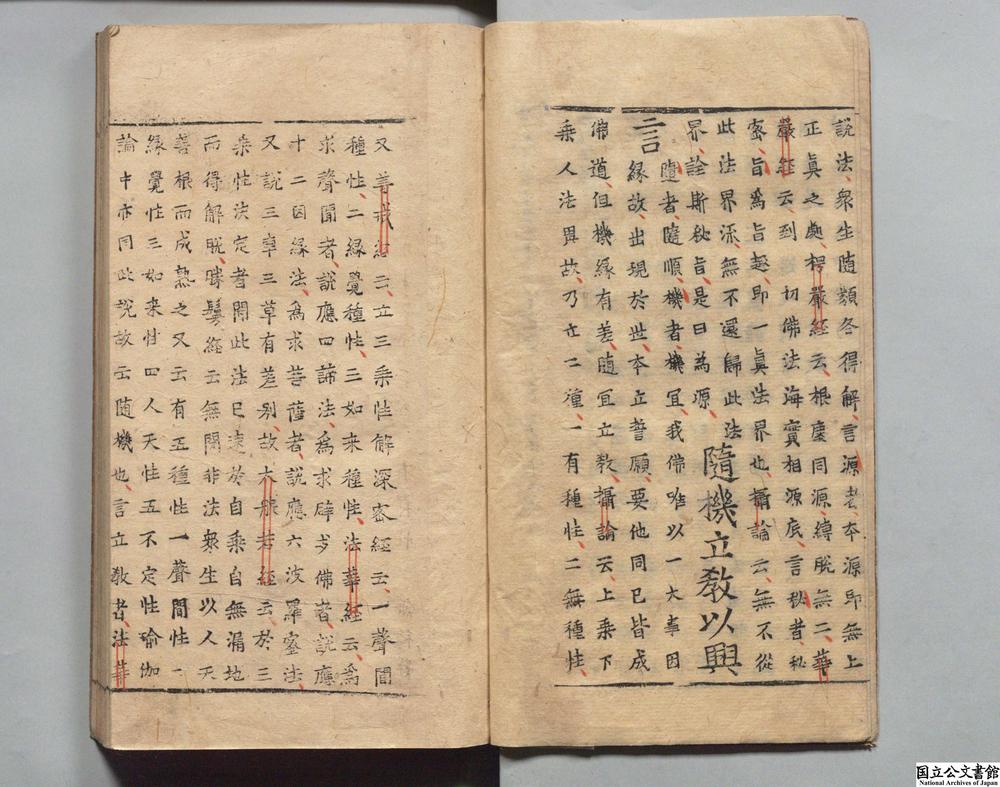 說法衆生隨類各得解言源者本源即無上
正眞之處楞嚴經云根塵同源縛脫無二華
嚴經云到一切佛法海實相源底言秘者秘
密旨為旨趣即一眞法界也攝論云無不從
此法界流無不還歸此法
界詮斯秘旨是曰為源
隨機立敎以興
言
隨者隨順機者機冝我佛唯以一大事因
緣故出現於世本立誓願要他同已皆成
佛道但機緣有差隨冝立敎攝論云上乘下
乘人法異故乃立二種一有種性二無種性
又善戒經云立三乘性解深密經云一聲聞
種性二緣覺種性三如来種性法華經云為
求聲聞者說應四諦法為求辟支佛者說應
十二因緣法為求菩薩者說應六波羅蜜法
又說三車三草有差别故大般若經云於三
乘性決定者聞此法已速於自乘自無漏地
而得解脫勝鬘經云無聞非法衆生以人天
善根而成熟之又云有五種性一聲聞性二
緣覺性三如来性四人天性五不定性瑜伽
論中亦同此說故云隨機也言立敎者法華
国立公文書館
National Archives of Japan